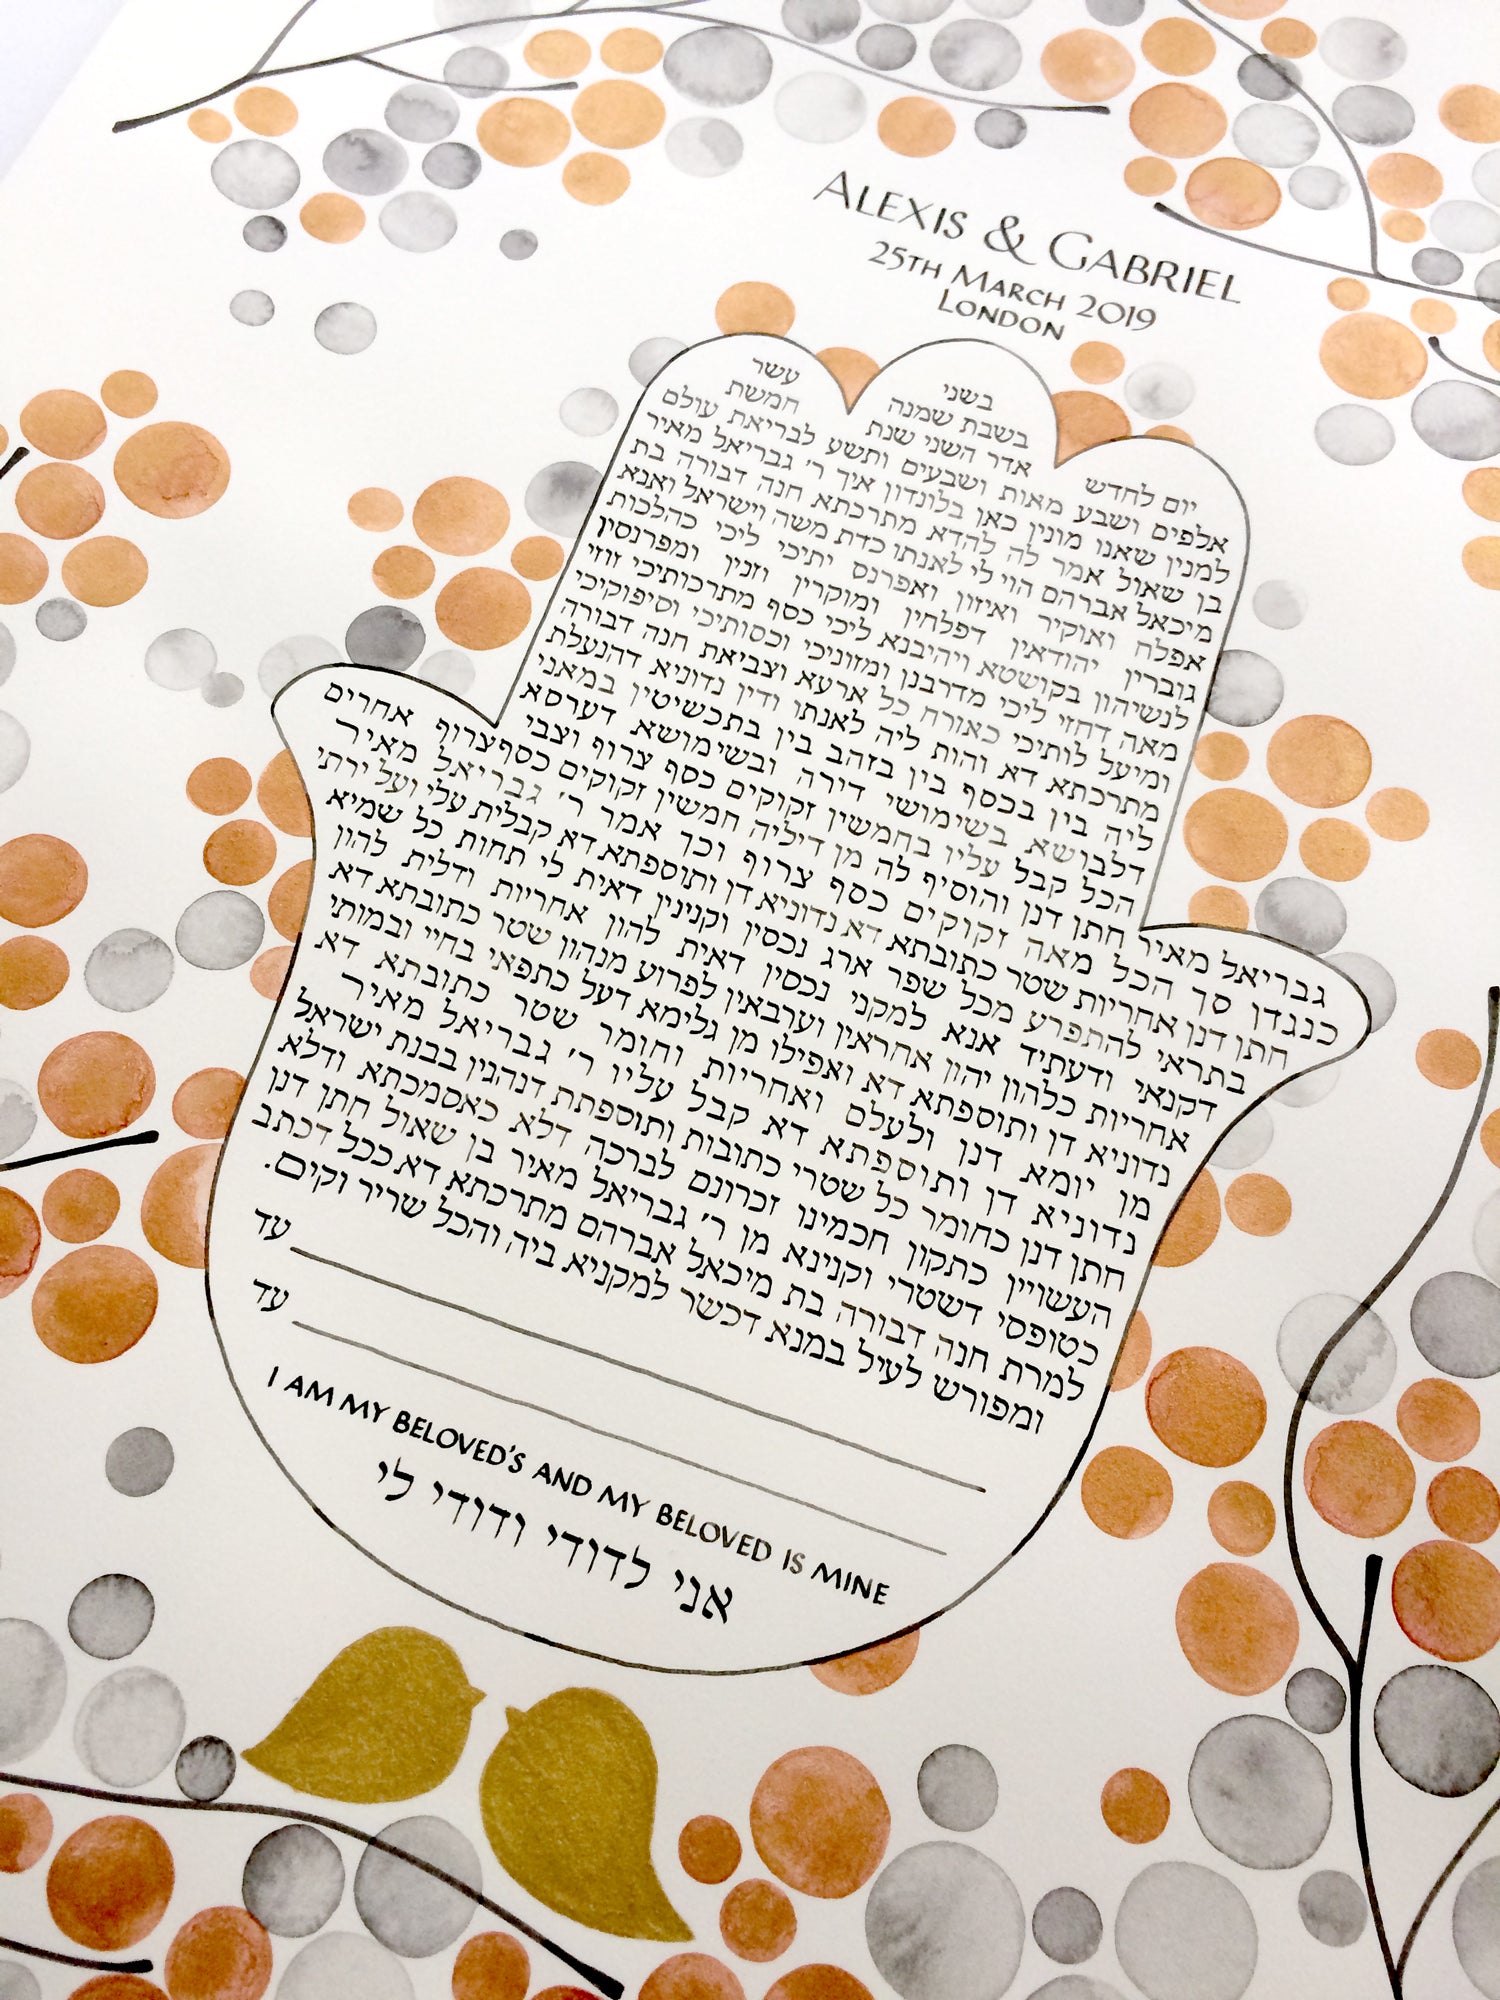 ALEXIS & GABRIEL
25TH MARCH 2019
LONDON
בשני
בשבת שמנה עשר
יום לחדש אדר השני שנת חמשת
אלפים ושבע מאות ושבעים ותשע לבריאת עולם
למנין שאנו מונין כאן בלונדון איך ר׳ גבריאל מאיר
בן שאול אמר לה להדא מתרכתא חנה דבורה בת
מיכאל אברהם הוי לי לאנתו כדת משה וישראל ואנא
אפלח ואוקיר ואיזון ואפרנס יתיכי ליכי כהלכות
גוברין יהודאין דפלחין ומוקרין וזנין ומפרנסין
לנשיהון בקושטא ויהיבנא ליכי כסף מתרכותיכי זוזי
מאה דחזי ליכי מדרבנן ומזוניכי וכסותיכי וסיפוקיכי
ומיעל לותיכי כאורח כל ארעא וצביאת חנה דבורה
מתרכתא דא והות ליה לאנתו ודין נדוניא דהנעלת
ליה בין בכסף בין בזהב בין בתכשיטין במאני
דלבושא בשימושי דירה ובשימושא דערסא
הכל קבל עליו בחמשין זקוקים כסף צרוף וצבי
גבריאל מאיר חתן דנן והוסיף לה מן דיליה חמשין זקוקים כסף צרוף אחרים
כנגדן סך הכל מאה זקוקים כסף צרוף וכך אמר ר׳ גבריאל מאיר
חתן דנן אחריות שטר כתובתא דא נדוניא דן ותוספתא דא קבלית עלי ועל ירתי
בתראי להתפרע מכל שפר ארג נכסין וקנינין דאית לי תחות כל שמיא
דקנאי ודעתיד אנא למקני נכסין דאית להון אחריות ודלית להון
אחריות כלהון יהון אחראין וערבאין לפרוע מנהון שטר כתובתא דא
נדוניא דן ותוספתא דא ואפילו מן גלימא דעל כתפאי בחיי ובמותי
מן יומא דנן ולעלם ואחריות וחומר שטר כתובתא דא
נדוניא דן ותוספתא דא קבל עליו ר׳ גבריאל מאיר
חתן דנן כחומר כל שטרי כתובות ותוספתת דנהגין בבנת ישראל
העשויין כתקון חכמינו זכרונם לברכה דלא כאסמכתא ודלא
כטופסי דשטרי וקנינא מן ר׳ גבריאל מאיר בן שאול חתן דנן
למרת חנה דבורה בת מיכאל אברהם מתרכתא דא ככל דכתב
ומפורש לעיל במנא דכשר למקניא ביה והכל שריר וקים.
עד
עד
I AM MY BELOVED'S AND MY BELOVED IS MINE
אני לדודי ודודי לי